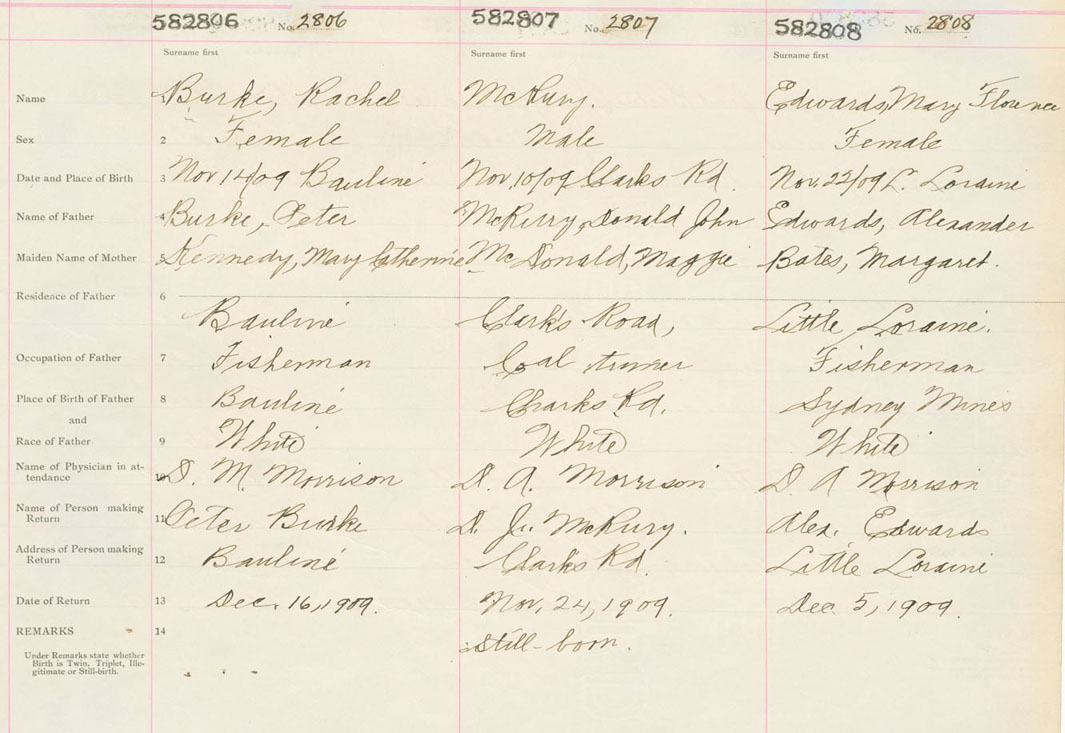 582806 No. 2806 582807 No. 2807 582808 No. 2808
Surname first Surname first Surname first
Name 1 Burke, Rachel McRury. Edwards, Mary Florence
Sex 2 Female Male Female
Date and Place of Birth 3 Nov 14/09 Bauline Nov. 10/09 Clarks Rd. Nov. 22/09 L. Loraine
Name of Father 4 Burke, Peter McRury, Donald John Edwards, Alexander
Maiden Name of Mother 5 Kennedy, Mary Catherine McDonald, Maggie Bates, Margaret.
Residence of Father 6
Bauline Clark's Road, Little Loraine.
Occupation of Father 7 Fisherman Coal Fisherman
Place of Birth of Father 8 Bauline Clarks Rd. Sydney Mines
and
Race of Father 9 White White White
Name of Physician in at-
tendance 10 D. M. Morrison D. A. Morrison D A Morrison
Name of Person making
Return 11 Peter Burke D. J. McRury. Alex. Edwards
Address of Person making
Return 12 Bauline Clarks Rd. Little Loraine
Date of Return 13 Dec. 16, 1909. Nov. 24, 1909. Dec 5, 1909.
REMARKS 14 Still-born.
Under Remarks state whether
Birth is Twin, Triplet, Ille-
gitimate or Still-birth.